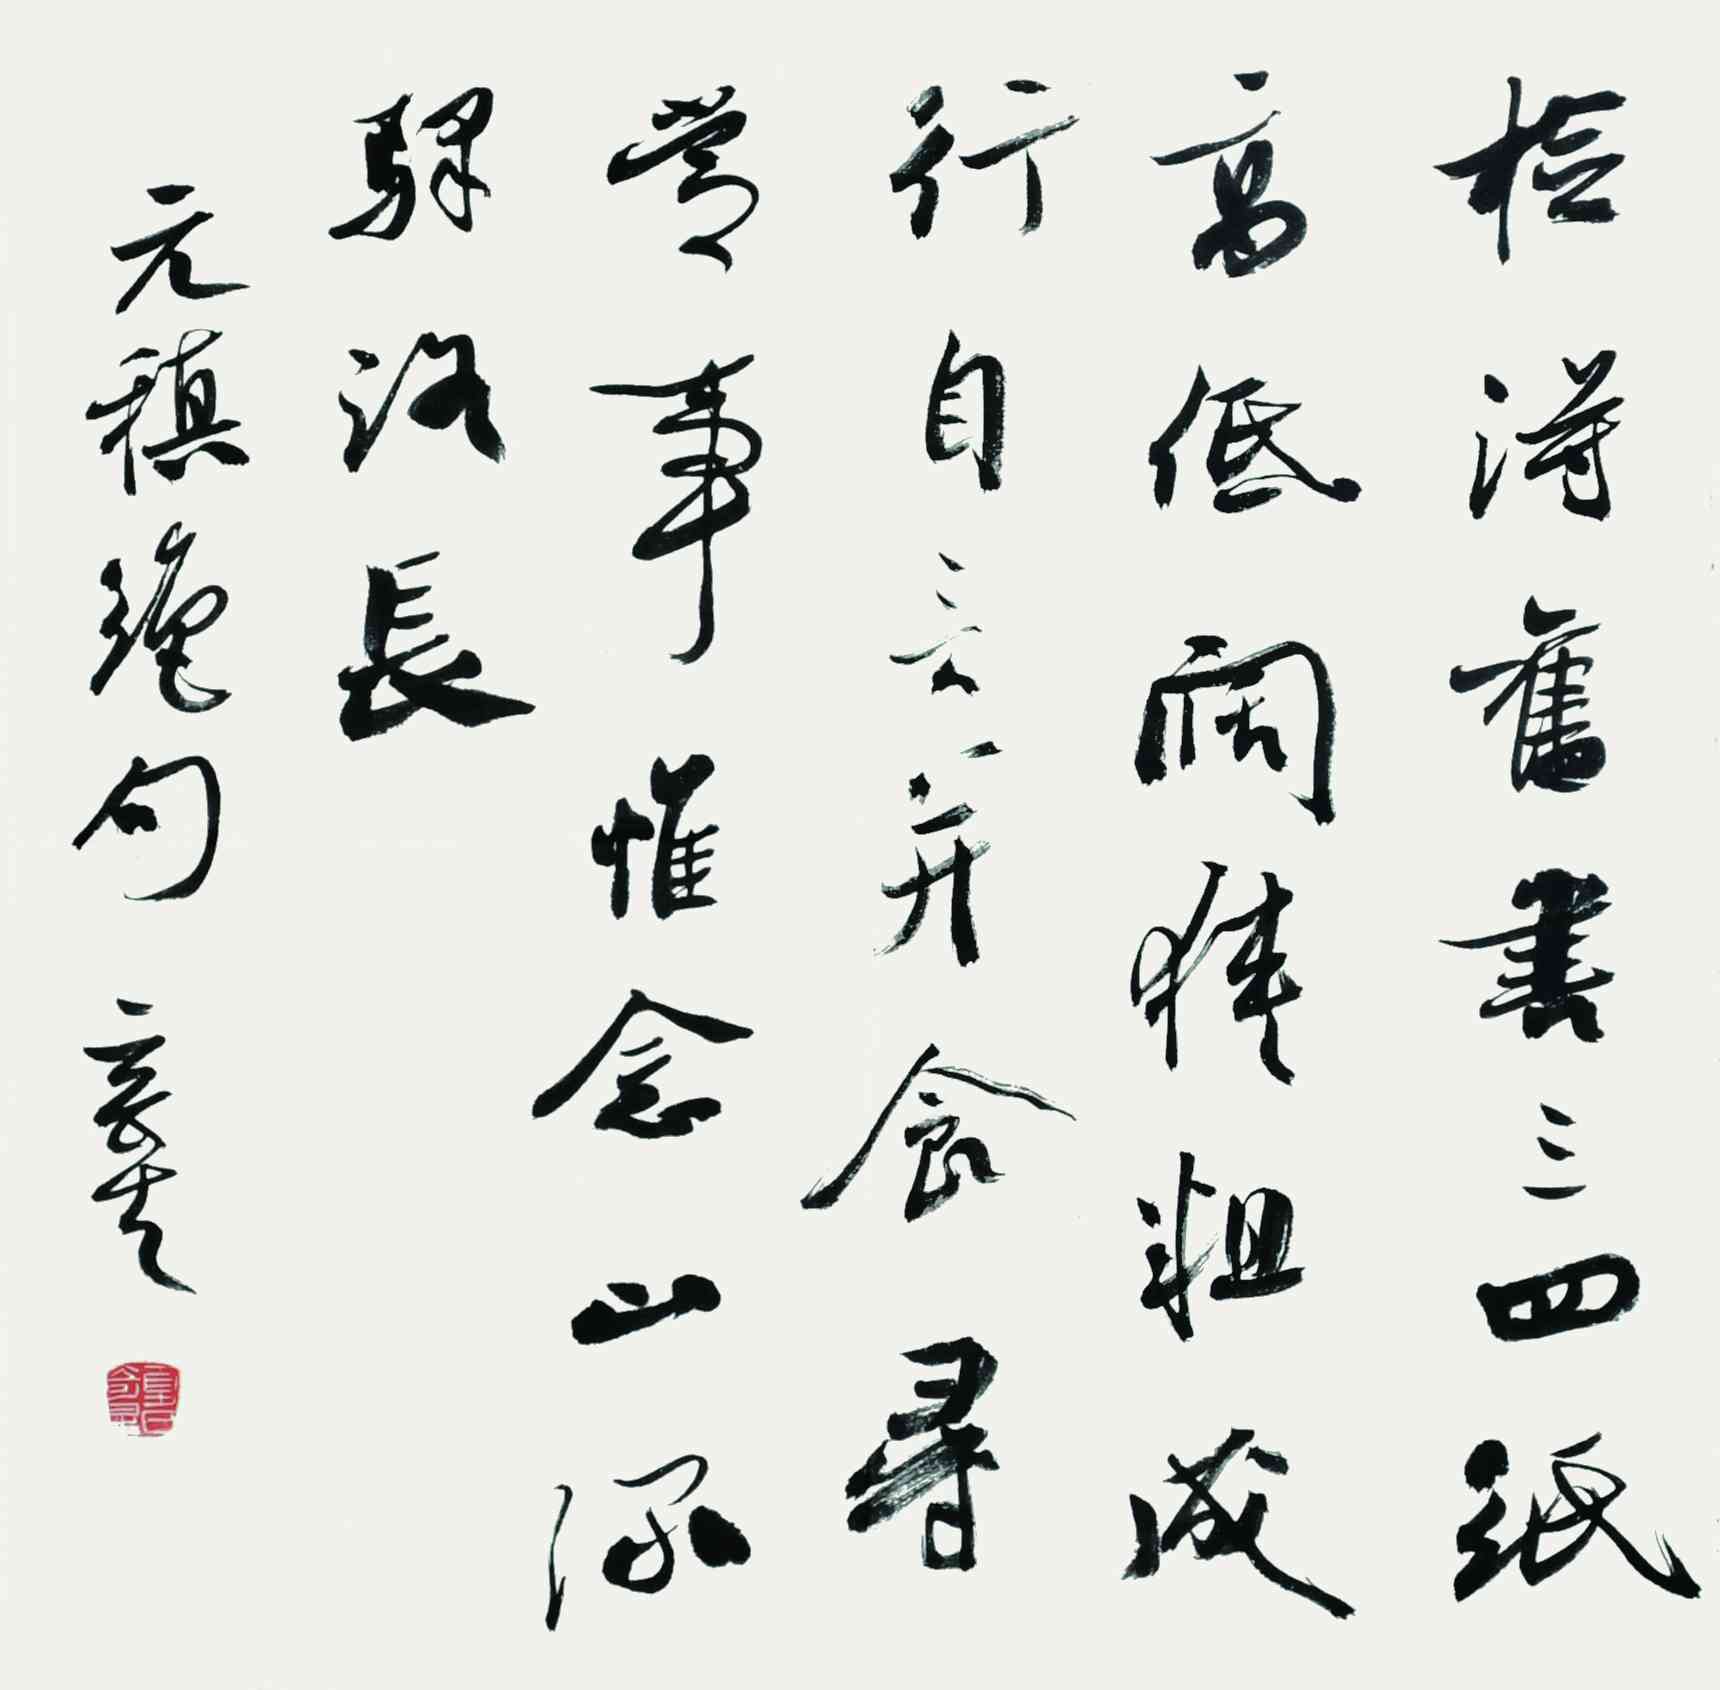 檢得舊書三四紙
高低闊狹粗成
行自言并食尋
常事惟念山深
驛路長
元稹絶句